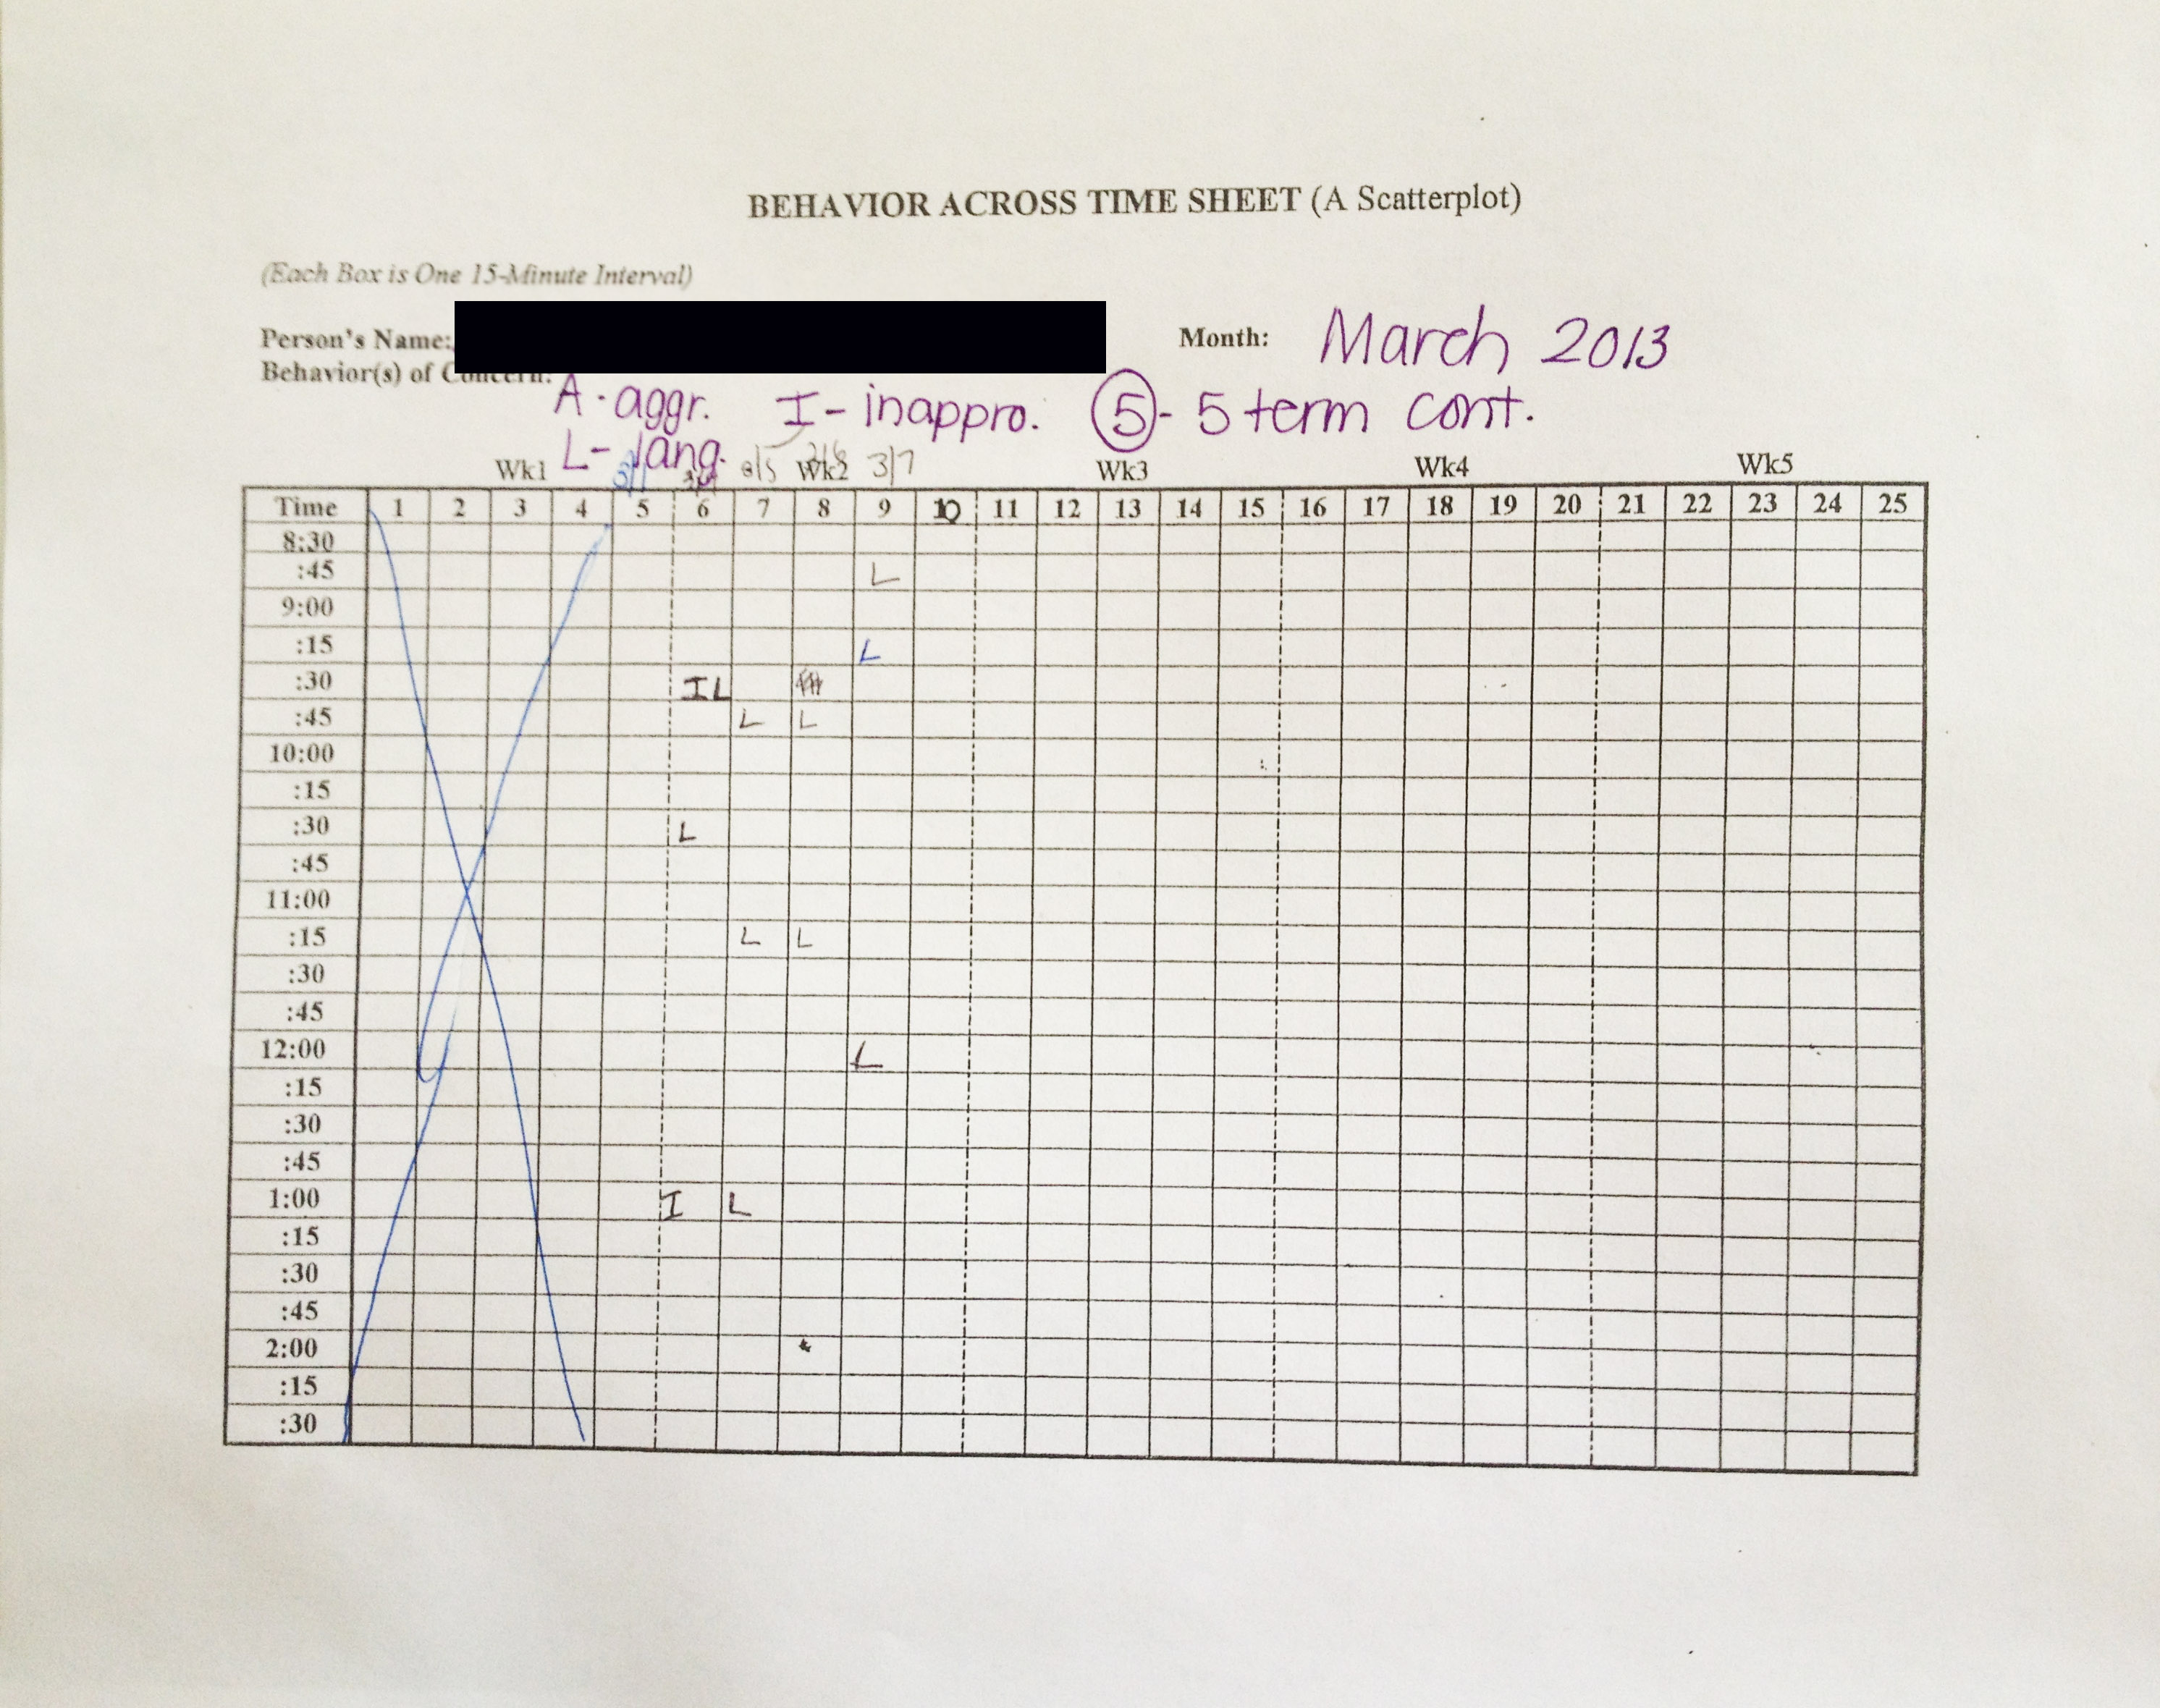 BEHAVIOR ACROSS TIME SHEET (A Scatterplot)
(Each Box is One 15-Minute Interval)
Person's Name:
Month: March 2013
Behavior(s) of Concern:
A - aggr. I - inappro. 5 - 5 term cont.
L - lang.
Wk1 3/1 3/5 Wk2 3/7 Wk3 Wk4 Wk5
Time 1 2 3 4 5 6 7 8 9 10 11 12 13 14 15 16 17 18 19 20 21 22 23 24 25
8:30
:45 L
9:00
:15 L
:30 I L
:45 L L
10:00
:15
:30 L
:45
11:00
:15 L L
:30
:45
12:00 L
:15
:30
:45
1:00 I L
:15
:30
:45
2:00
:15
:30